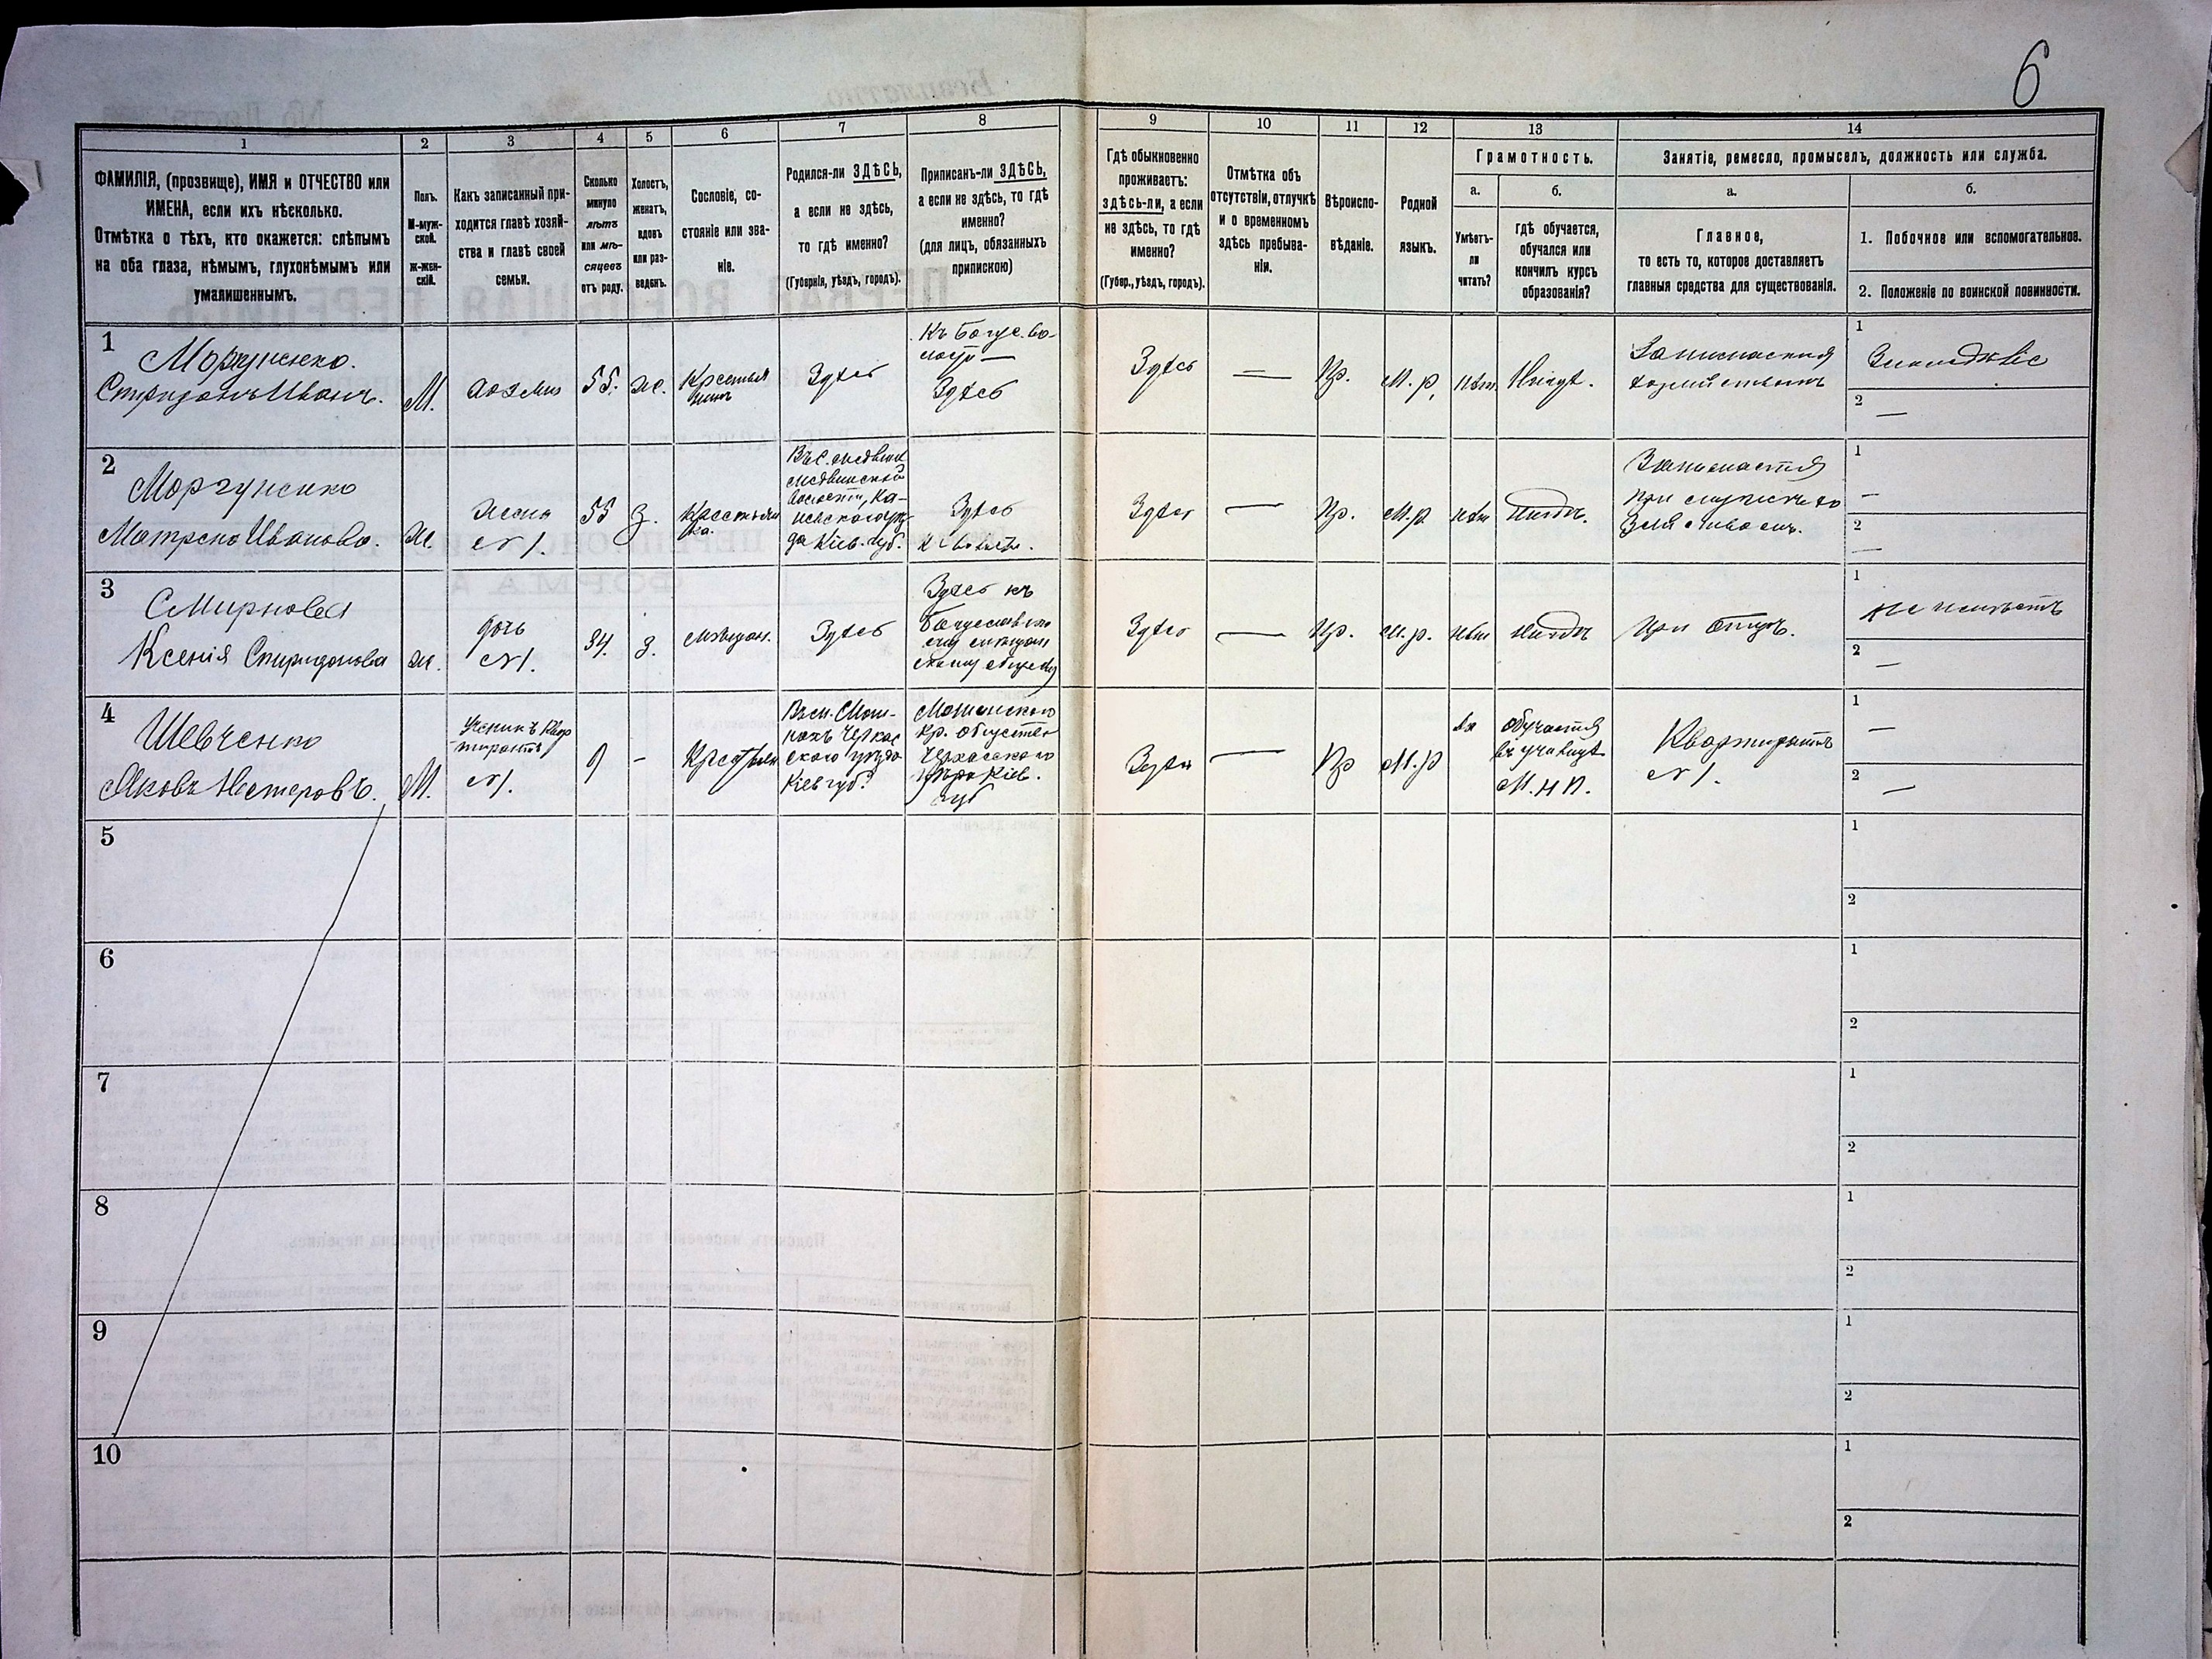 6
1
2
3
4
5
6
7
8
9
10
11
12
13
14
ФАМИЛІЯ, (прозвище), ИМЯ и ОТЧЕСТВО или
ИМЕНА, если ихъ нѣсколько.
Отмѣтка о тѣхъ, кто окажется: слѣпымъ
на оба глаза, нѣмымъ, глухонѣмымъ или
умалишеннымъ.
Полъ.
М-муж-
ской.
ж-жен-
скій.
Какъ записанный при-
ходится главѣ хозяй-
ства и главѣ своей
семьи.
Сколько
минуло
лѣтъ
или мѣ-
сяцевъ
отъ роду.
Холостъ,
женатъ,
вдовъ
или раз-
веденъ.
Сословіе, со-
стояніе или зва-
ніе.
Родился-ли ЗДѢСЬ,
а если не здѣсь,
то гдѣ именно?
(Губернія, уѣздъ, городъ).
Приписанъ-ли ЗДѢСЬ,
а если не здѣсь, то гдѣ
именно?
(для лицъ, обязанныхъ
припискою)
Гдѣ обыкновенно
проживаетъ:
здѣсь-ли, а если
не здѣсь, то гдѣ
именно?
(Губер., уѣздъ, городъ).
Отмѣтка объ
отсутствіи, отлучкѣ
и о временномъ
здѣсь пребыва-
ніи.
Вѣроиспо-
вѣданіе.
Родной
языкъ.
Грамотность.
а.
Умѣетъ-
ли
читать?
б.
гдѣ обучается,
обучался или
кончилъ курсъ
образованія?
Занятіе, ремесло, промыселъ, должность или служба.
а.
Главное,
то есть то, которое доставляетъ
главныя средства для существованія.
б.
1. Побочное или вспомогательное.
2. Положеніе по воинской повинности.
1
Моргуненко.
Спиридонъ Иванъ.
М.
хозяин
55.
ж.
Крестья
нинъ
Здѣсь
Къ Богус. Во-
лости —
Здѣсь
Здѣсь
—
Пр.
М. р.
нѣт
Нигдѣ.
1
2
—
2
Моргуненко
Матрена Иванова.
ж.
Жена
№ 1.
55
З.
Крестьян
ка.
Въ с. Медвинѣ
Медвинской
Волости, Ка-
невского уѣз
да Кіев. губ.
Здѣсь
Здѣсь
—
Пр.
М. р.
нѣт
1
—
2
—
3
Смирновая
Ксенія Спиридонова
ж.
дочь
№ 1.
34.
З.
мѣщан.
Здѣсь
Здѣсь къ
Богуславско
му мѣщан
скому обществу
Здѣсь
—
Пр.
М. р.
нѣт
При отцѣ.
1
не имѣетъ
2
—
4
Шевченко
Яковъ Нестеровъ.
М.
Ученикъ Квар
тирантъ
№ 1.
9
-
Крестьян
Въ м. Мош-
нахъ Черкас
ского уѣзда
Кіев губ.
Мошенского
Кр. Общества
Черкасского
уѣзда Кіев.
губ
Здѣсь
—
Пр
М. р
да
обучается
въ училищѣ
М. Н. П.
Квартирантъ
№ 1.
1
—
2
—
5
1
2
6
1
2
7
1
2
8
1
2
9
1
2
10
1
2